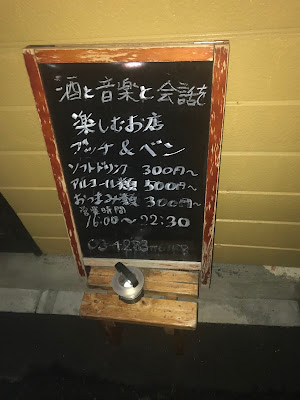 酒と音楽と会話を
楽しむお店
アッチ & ベン
ソフトドリンク 300円〜
アルコール類 500円〜
おつまみ類 300円〜
営業時間
16:00〜22:30